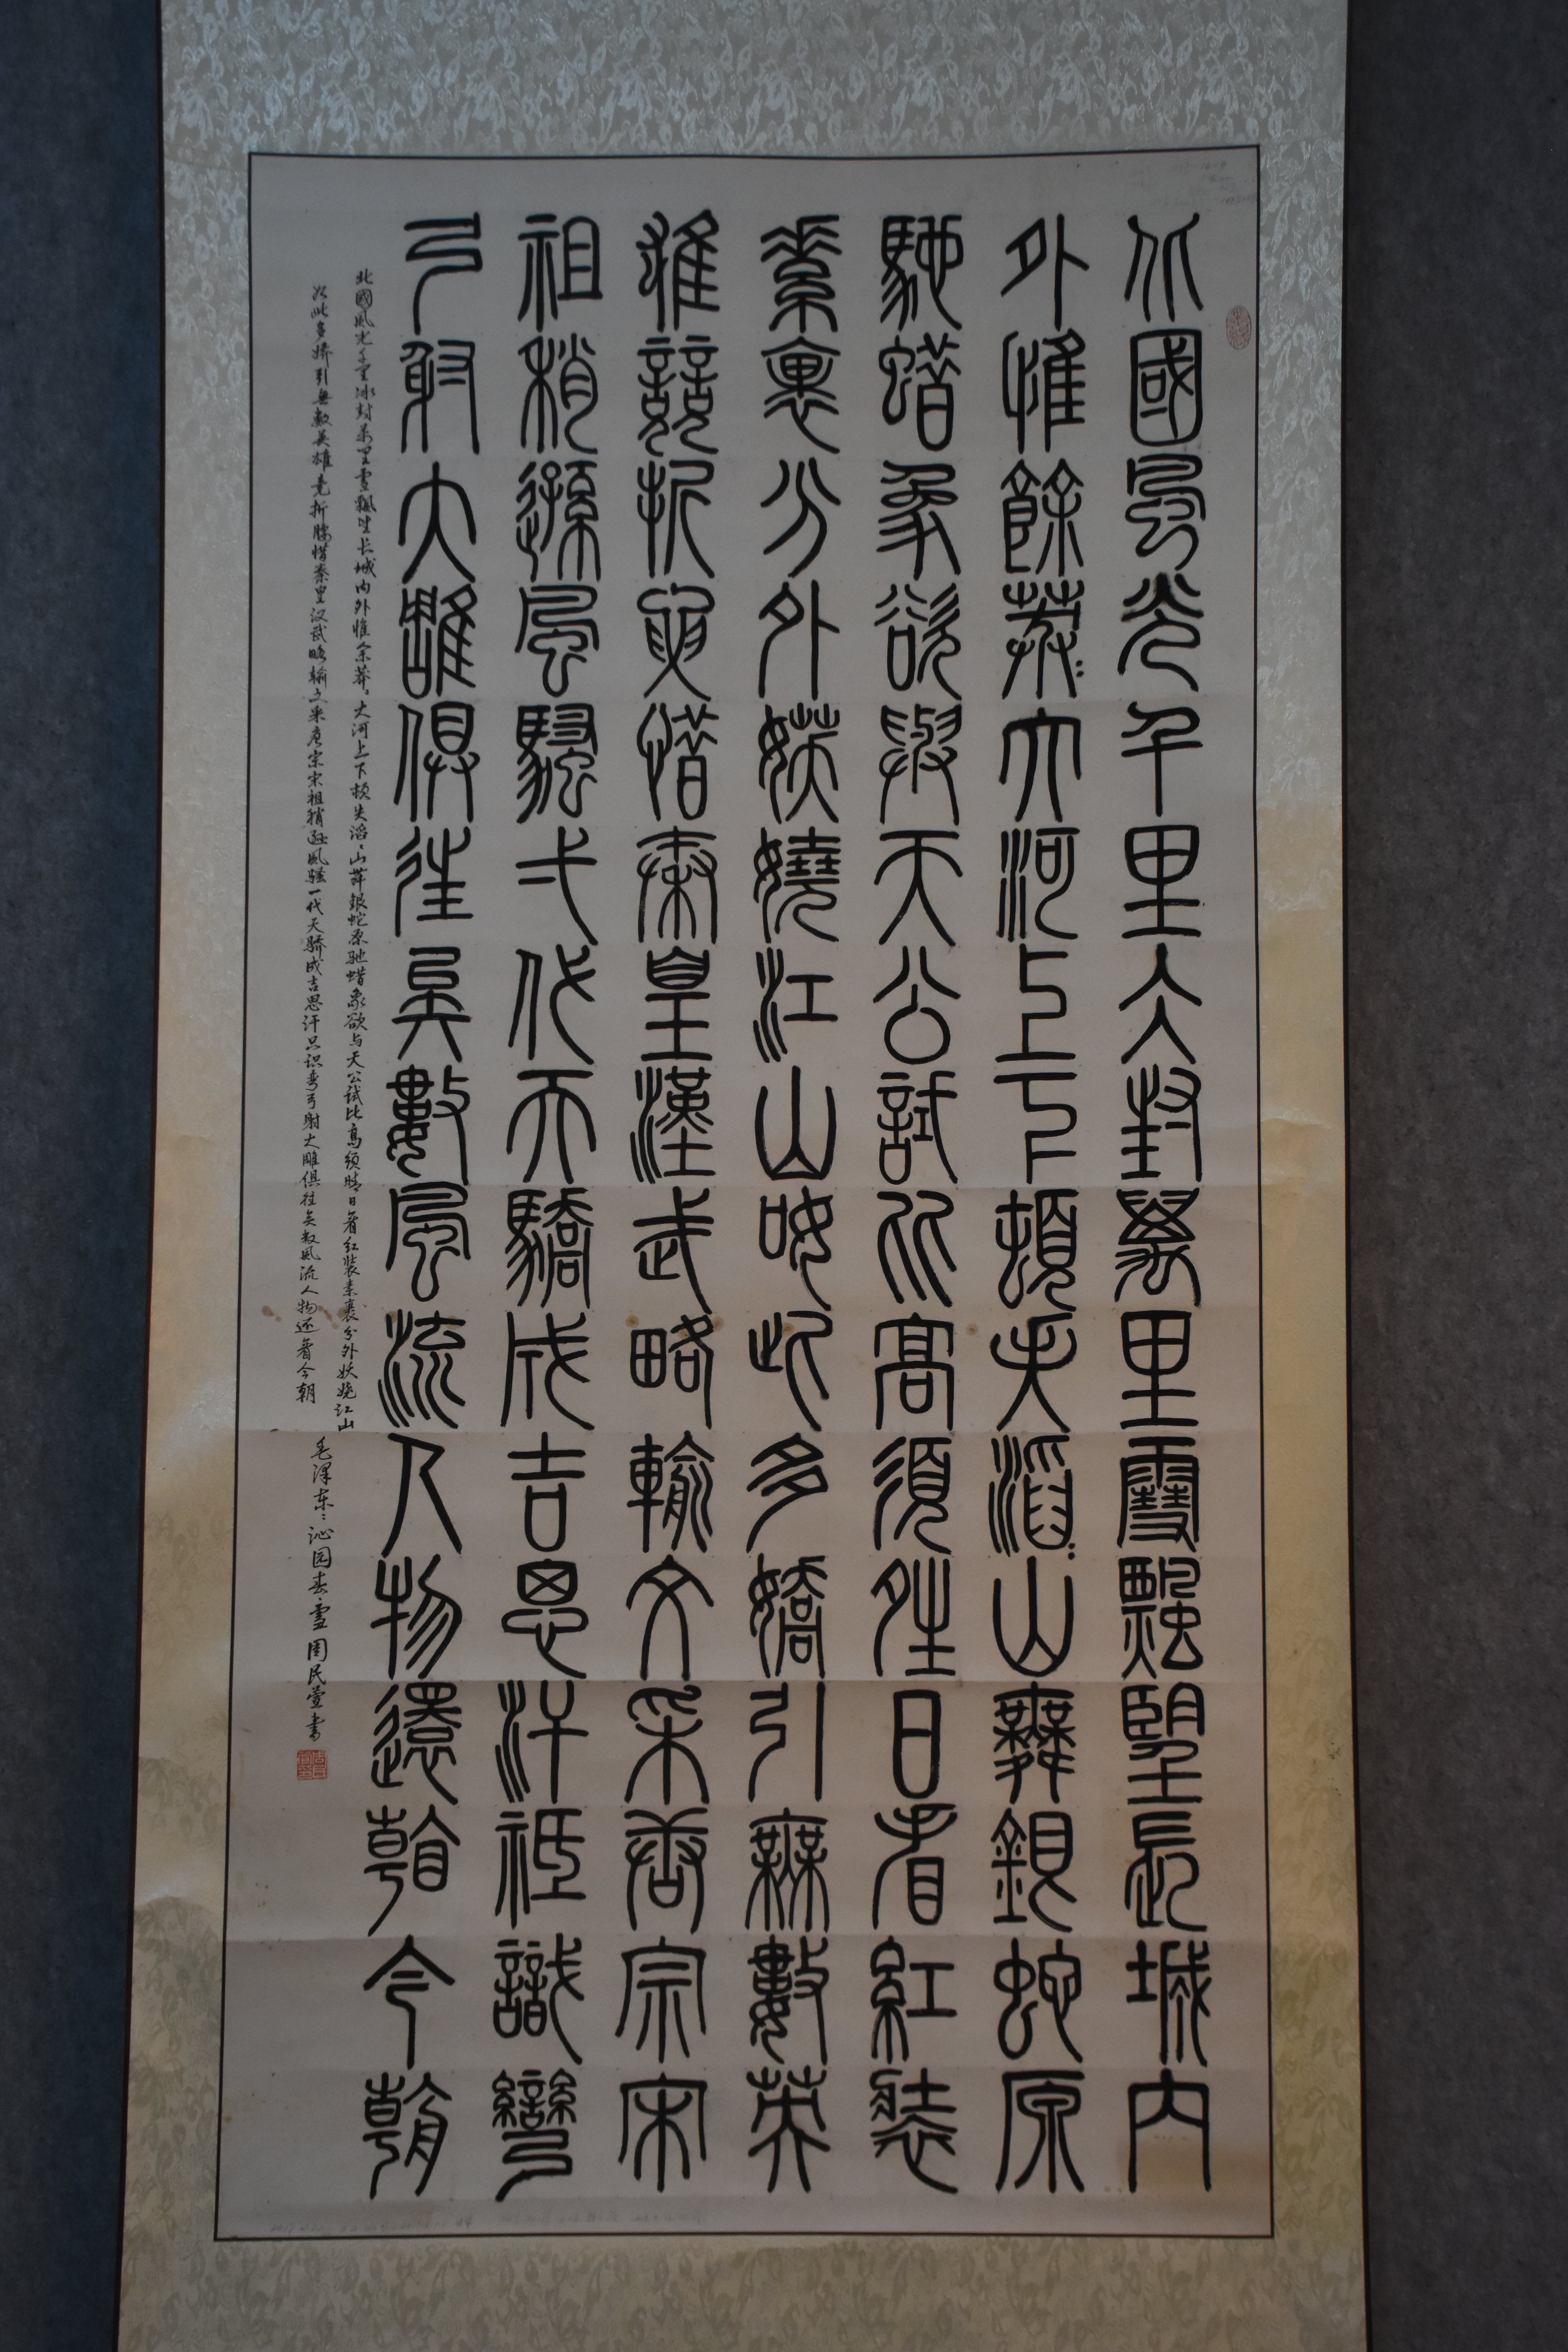 北國風光千里仌封萬里雪飄望長城內
外惟餘莽〻大河上下頓失滔〻山舞銀蛇原
馳蜡象欲與天公試比高須夝日看紅裝
素裹分外媄嬈江山如此多嬌引無數英
雄競折要惜秦皇漢武略輸文采唐宗宋
祖稍遜風騷弌代天驕成吉思汗祗識彎
弓射大雕俱往矣數風流人物還看今朝
北國風光千里冰封萬里雪飘望长城内外惟余莽〻大河上下顿失滔〻山萍银蛇原驰蜡象欲与天公试比高须晴日看红装素裹分外妖娆江山
如此多娇引無數英雄竞折腰惜秦皇汉武略输文采唐宗宋祖稍逊風骚一代天骄成吉思汗只识弯弓射大雕俱往矣数風流人物还看今朝 毛泽东:沁园春·雪 周民萱书